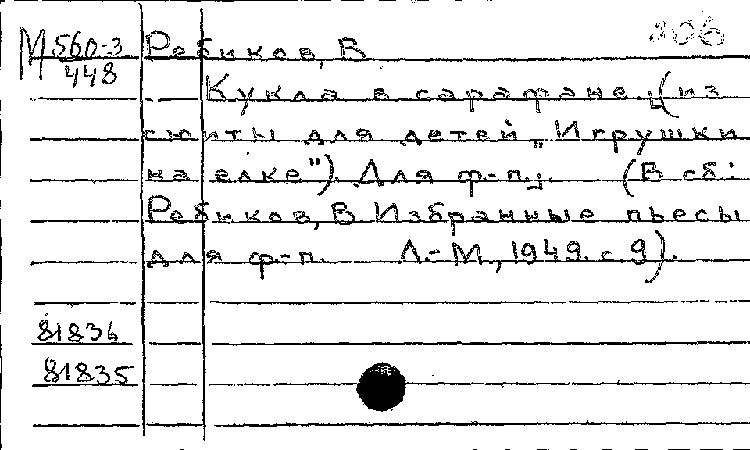 М 560-3 Ребиков, В 306
448
Кукла в сарафане. (из
сюиты для детей „Игрушки
на елке"). Для ф-п. (В сб:
Ребиков, В Избранные пьесы
для ф-п. Л.-М., 1949. с. 9).
81836
81835